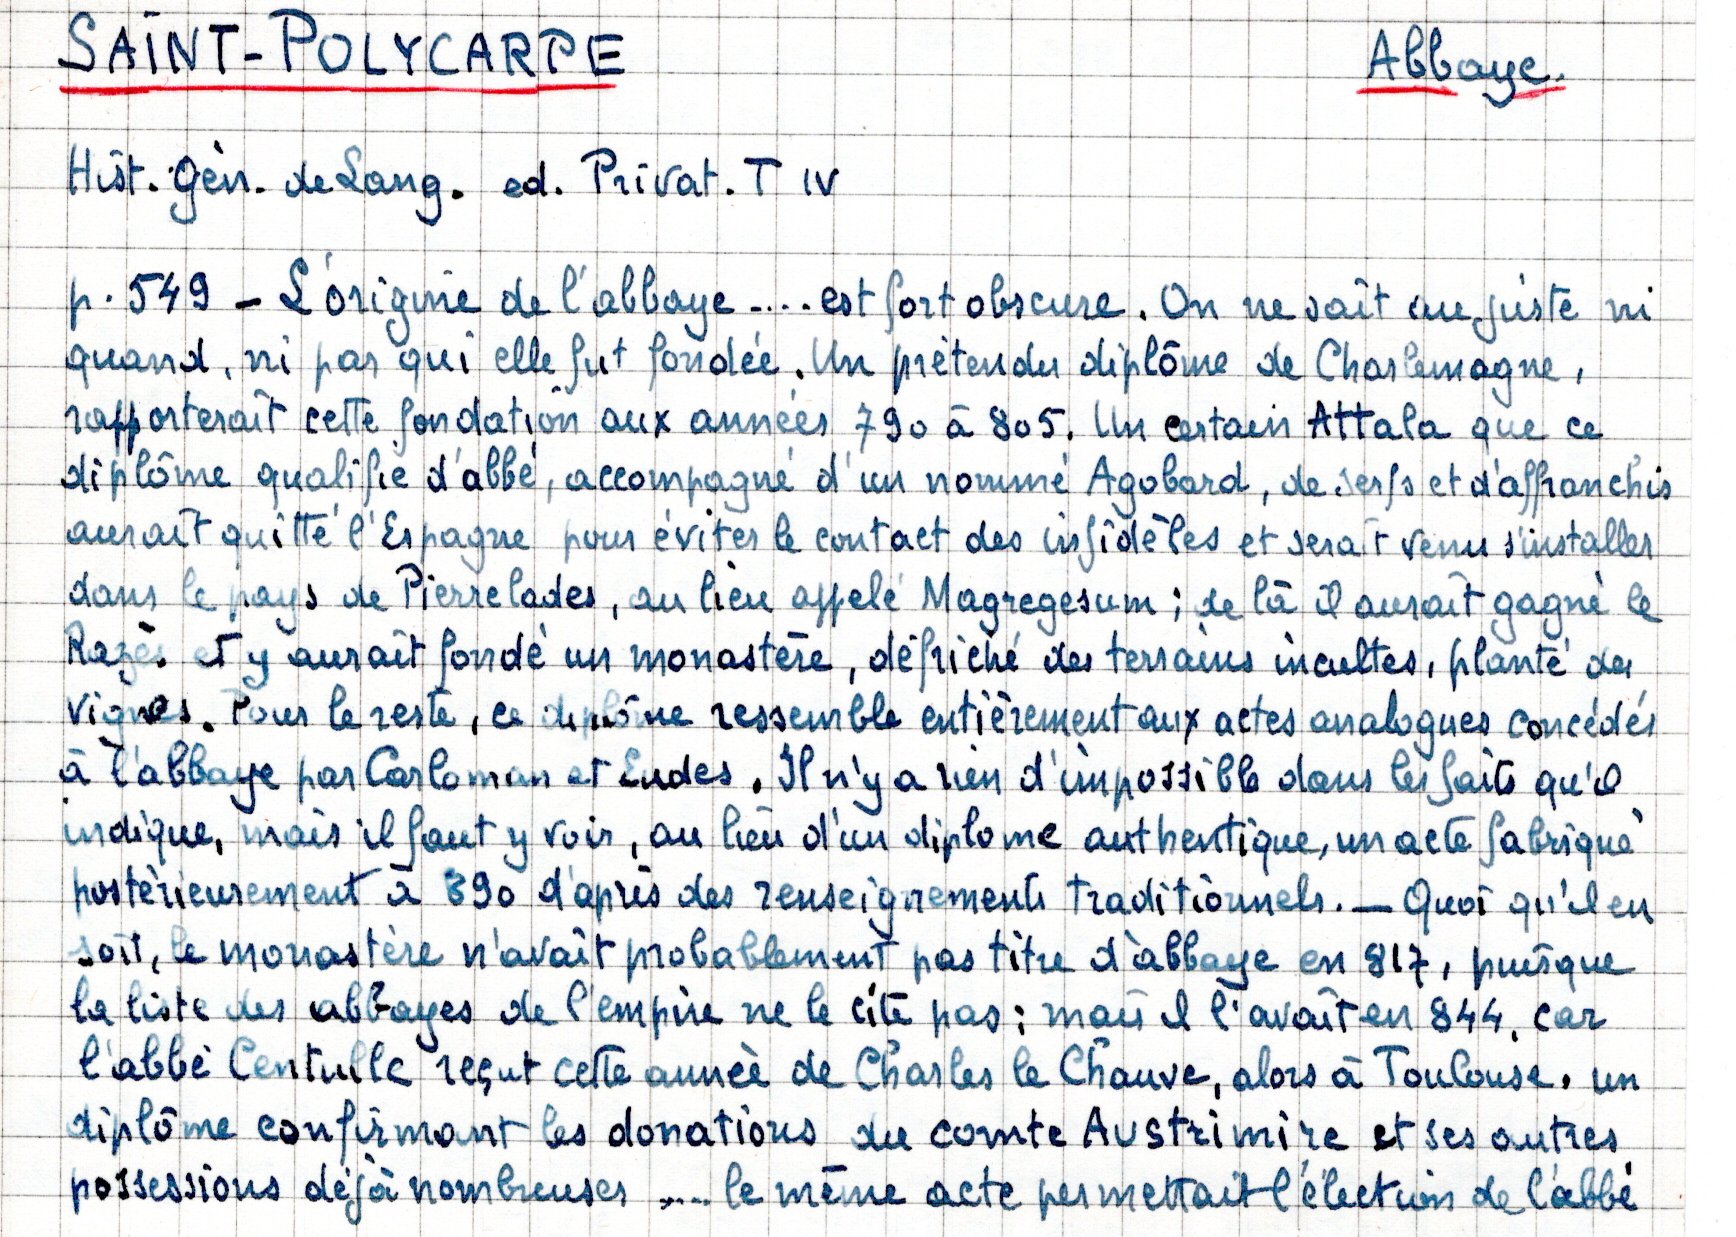 SAINT-POLYCARPE
Abbaye.
Hist. Gén. de Lang. ed. Privat. T IV
p. 549 - L'origine de l'abbaye .... est fort obscure. On ne sait au juste ni
quand, ni par qui elle fut fondée. Un prétendu diplôme de Charlemagne,
rapporterait cette fondation aux années 790 à 805. Un certain Attala que ce
diplôme qualifie d'abbé, accompagné d'un nommé Agobard, de serfs et d'affranchis
aurait quitté l'Espagne pour éviter le contact des infidèles et serait venu s'installer
dans le pays de Pierrelades, au lieu appelé Magregesum ; de là il aurait gagné le
Razès et y aurait fondé un monastère, défriché des terrains incultes, planté des
vignes. Pour le reste, ce diplôme ressemble entièrement aux actes analogues concédés
à l'abbaye par Carloman et Eudes. Il n'y a rien d'impossible dans les faits qu'il
indique, mais il faut y voir, au lieu d'un diplome authentique, un acte fabriqué
postérieurement à 890 d'après des renseignements traditionnels. — Quoi qu'il en
soit, le monastère n'avait probablement pas titre d'abbaye en 817, puisque
la liste des abbayes de l'empire ne le cite pas ; mais il l'avait en 844, car
l'abbé Centulle reçut cette année de Charles le Chauve, alors à Toulouse, un
diplôme confirmant les donations du comte Austrimire et ses autres
possessions déjà nombreuses .... le même acte permettait l'élection de l'abbé